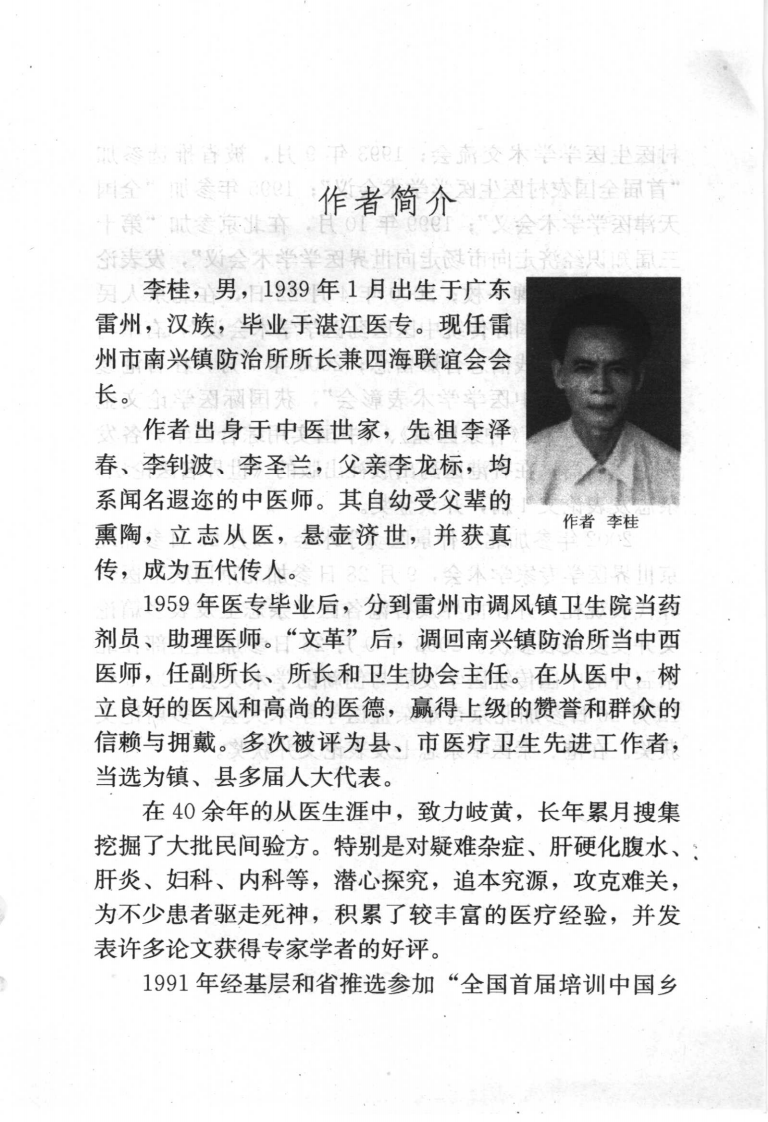 作者简介
李桂，男，1939年11月出生于广东
雷州，汉族，毕业于湛江医专。现任雷
州市南兴镇防治所所长兼四海联谊会会
长。
作者出身于中医世家，先祖李泽
春、李钊波、李圣兰，父亲李龙标，均
系闻名遐迩的中医师。其自幼受父辈的
熏陶，立志从医，悬壶济世，并获真
传，成为五代传人。
作者 李桂
1959年医专毕业后，分到雷州市调风镇卫生院当药
剂员、助理医师。“文革”后，调回南兴镇防治所当中西
医师，任副所长、所长和卫生协会主任。在从医中，树
立良好的医风和高尚的医德，赢得上级的赞誉和群众的
信赖与拥戴。多次被评为县、市医疗卫生先进工作者，
当选为镇、县多届人大代表。
在40余年的从医生涯中，致力岐黄，长年累月搜集
挖掘了大批民间验方。特别是对疑难杂症、肝硬化腹水、
肝炎、妇科、内科等，潜心探究，追本究源，攻克难关，
为不少患者驱走死神，积累了较丰富的医疗经验，并发
表许多论文获得专家学者的好评。
1991年经基层和省推选参加“全国首届培训中国乡